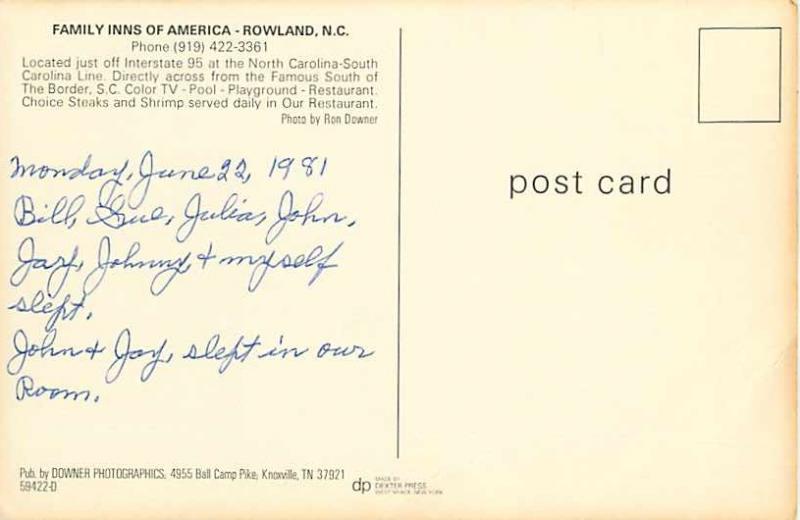 FAMILY INNS OF AMERICA - ROWLAND, N.C.
Phone (919) 422-3361
Located just off Interstate 95 at the North Carolina-South
Carolina Line. Directly across from the Famous South of
The Border, S.C. Color TV - Pool - Playground - Restaurant.
Choice Steaks and Shrimp served daily in Our Restaurant.
Photo by Ron Downer
Monday, June 22, 1981
Bill, Sue, Julia, John,
Jay, Johnny, + myself
slept.
John + Jay, slept in our
Room.
Pub. by DOWNER PHOTOGRAPHICS, 4955 Ball Camp Pike, Knoxville, TN 37921
59422-D
post card
dp MADE BY
DEXTER PRESS
WEST NYACK, NEW YORK